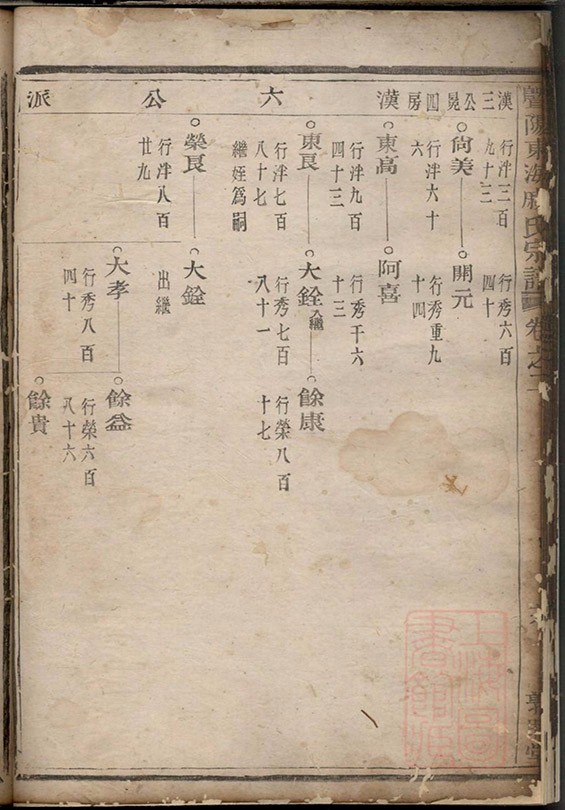 東海
氏宗譜
卷之二
漢三公晃四房
漢六公派
行泮三百九十三
行秀六百四十
尙美
開元
行泮六十六
行秀重九十四
東高
阿喜
行泮九百四十三
行秀千六十三
東良
大銓
入繼
餘康
行泮七百八十七
繼姪爲嗣
行秀七百八十一
行榮八百十七
榮良
大銓
行泮八百廿九
出繼
大孝
餘益
行秀八百四十
行榮六百八十六
餘貴
上海圖書館